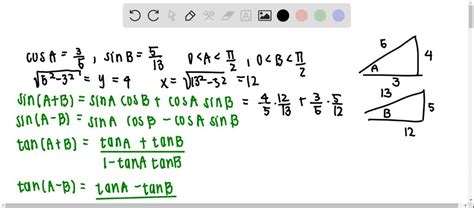 cosA = 3/5, sinB = 5/13 0<A<π/2, 0<B<π/2
√5²-3² = y = 4 x = √13²-5² = 12
sin(A+B) = sinA cosB + cosA sinB = 4/5 · 12/13 + 3/5 · 5/12
sin(A-B) = sinA cosB - cosA sinB
tan(A+B) = tanA + tanB / 1-tanA tanB
tan(A-B) = tanA - tanB
5
4
A
3
13
5
B
12